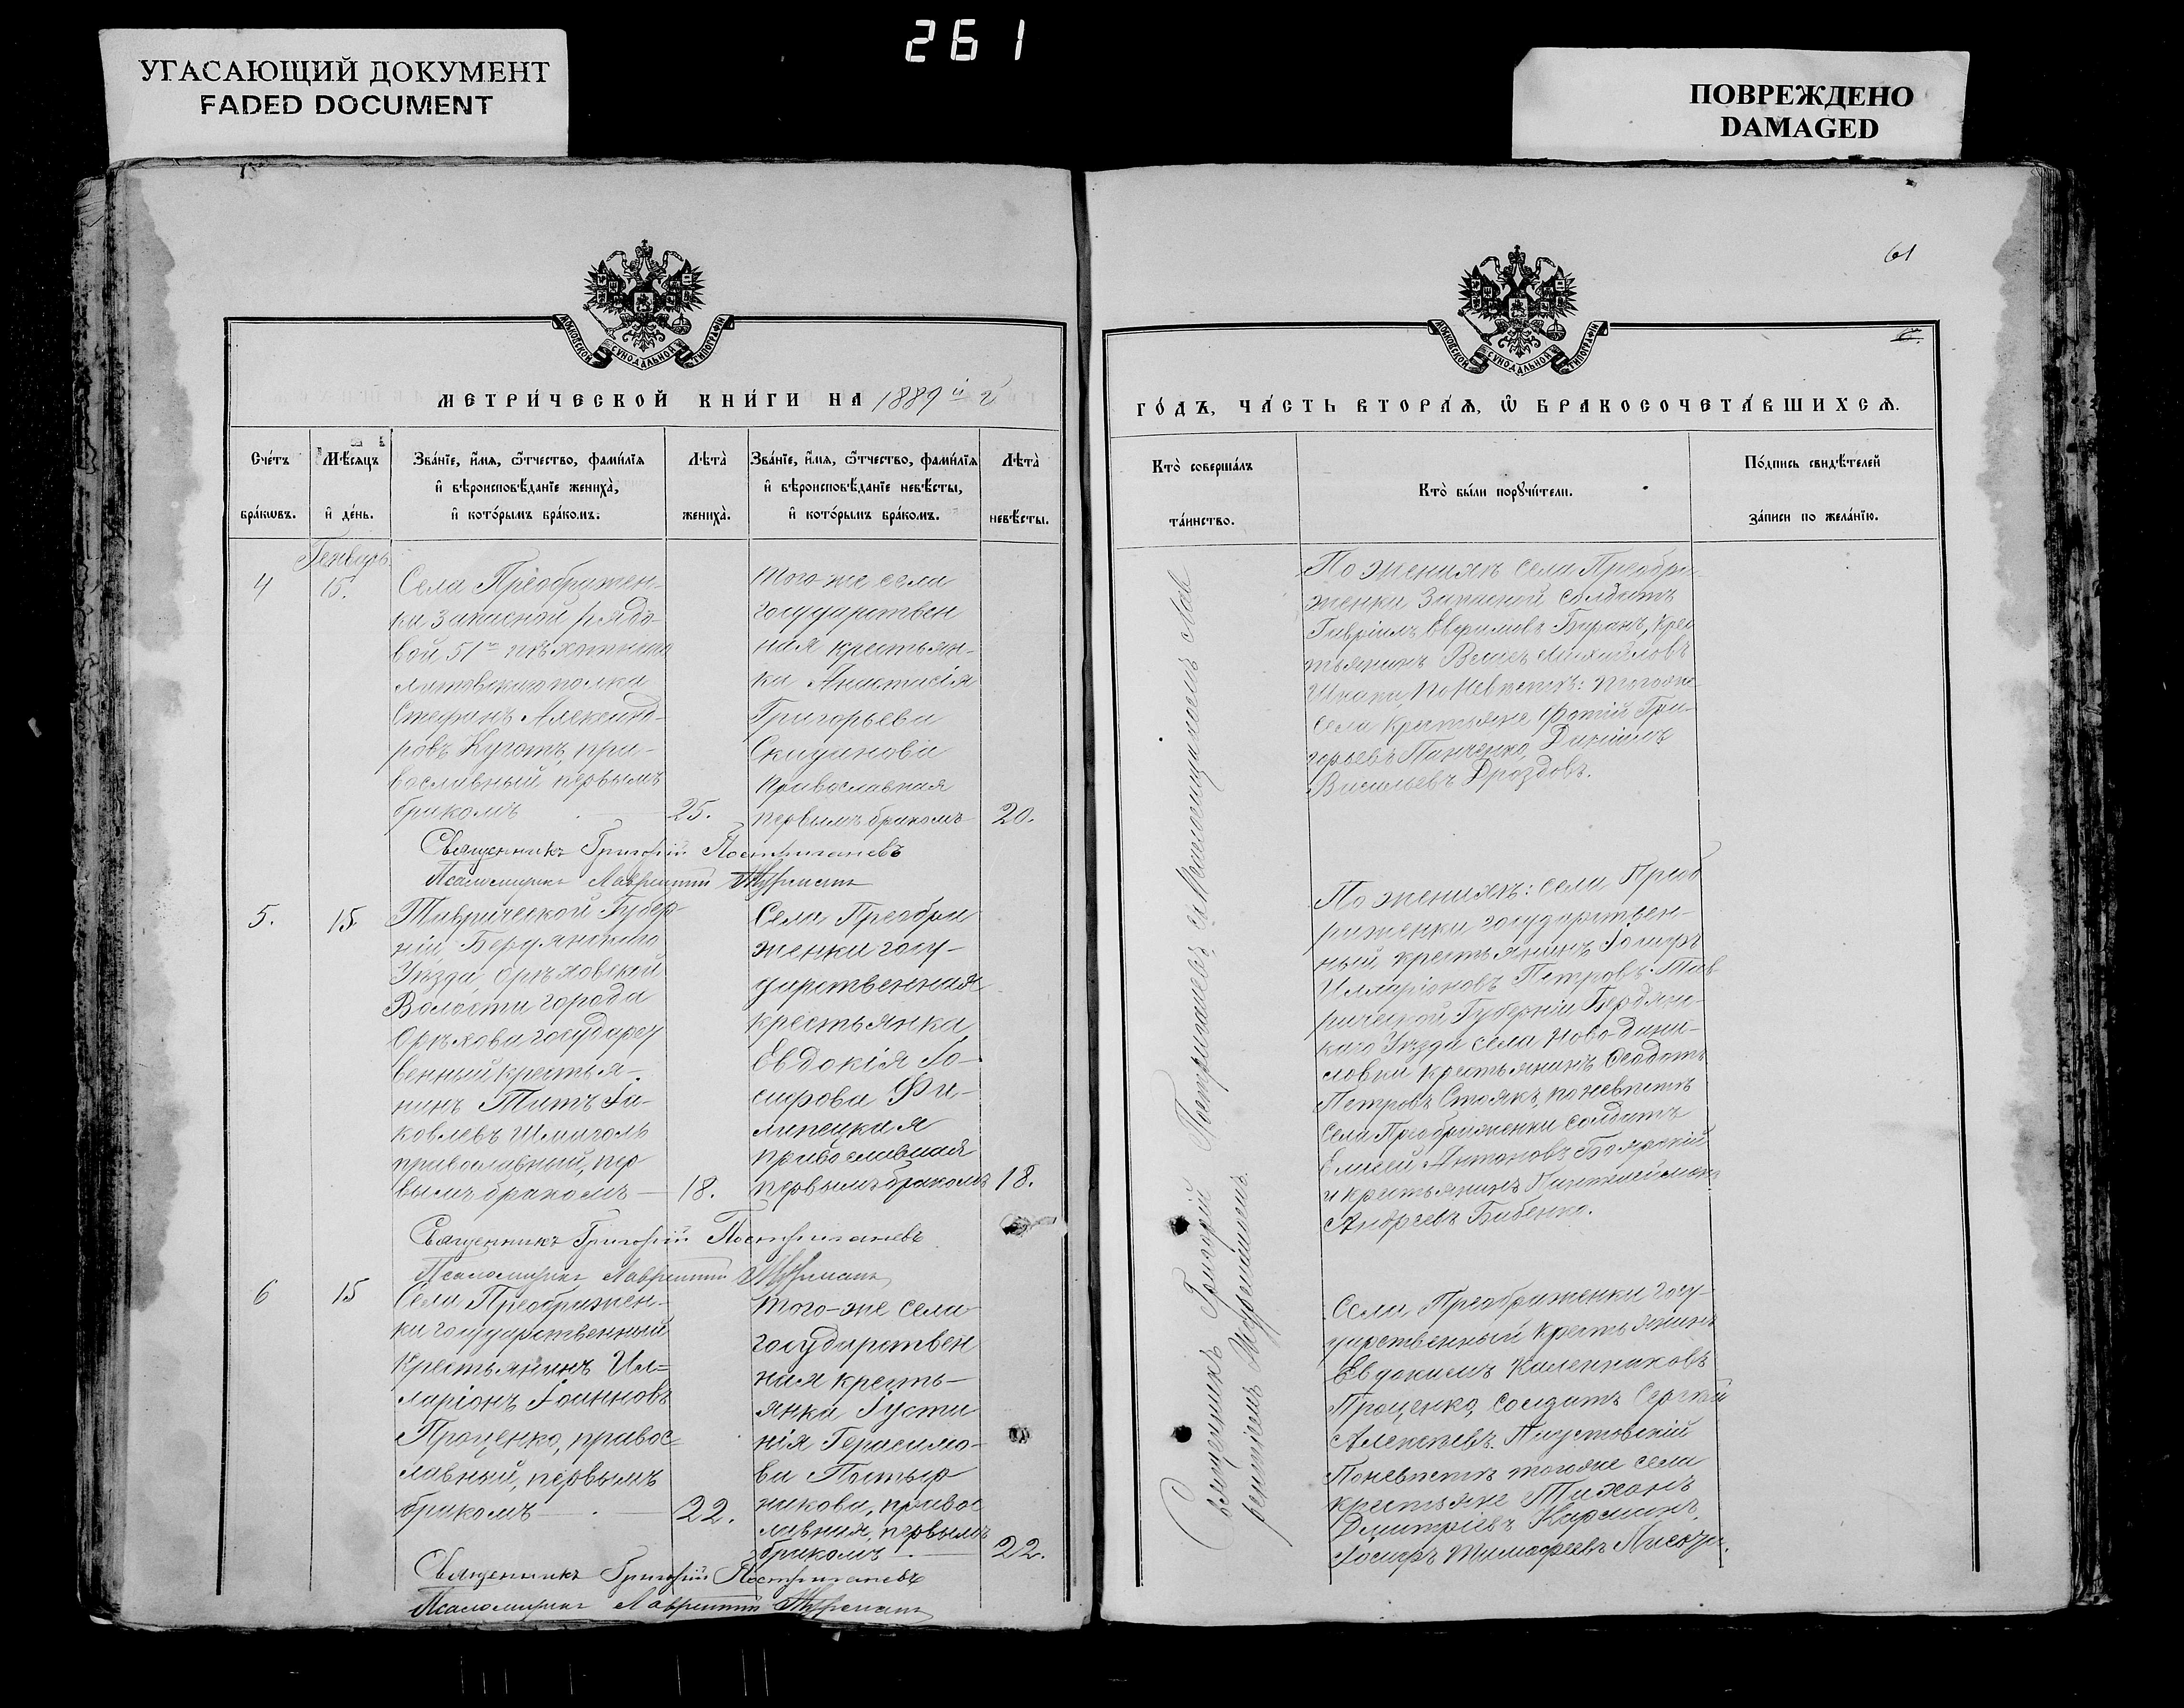 261
УГАСАЮЩИЙ ДОКУМЕНТ
FADED DOCUMENT
ПОВРЕЖДЕНО
DAMAGED
МОСКОВСКОЙ СУНОДАЛЬНОЙ ТИПОГРАФІИ
МЕТРИ́ЧЕСКОЙ КНИ́ГИ НА 1889й г
Сче́тъ бра́кωвъ.
Мѣ́сяцъ и҆ де́нь.
Зва́нїе, и҆́мѧ, ѻ҆́тчество, фами́лїѧ
и҆ вѣроисповѣ́данїе жениха̀,
и҆ кото́рымъ бра́комъ.
Лѣта̀ жениха̀.
Зва́нїе, и҆́мѧ, ѻ҆́тчество, фами́лїѧ
и҆ вѣроисповѣ́данїе невѣ́сты,
и҆ кото́рымъ бра́комъ.
Лѣта̀ невѣ́сты.
Генварь
4
15.
Села Преображен-
ки запасной рядо-
вой 51го пѣхотнаго
Литовскаго полка
Стефанъ Александ-
ровъ Куготъ, пра-
вославный первымъ
бракомъ
25.
того же села
государствен
ная крестьян-
ка Анастасія
Григорьева
Скиданова
православная
первымъ бракомъ
20.
Священникъ Григорій Постригачевъ
Псаломщикъ Лаврентій
5.
15.
Таврической Губер-
ніи Бердянскаго
Уѣзда, Орѣховской
Волости города
Орѣхова государст
венный крестья-
нинъ Титъ Іа-
ковлевъ Шмиголь
православный, пер
вымъ бракомъ
18.
Села Преобра-
женки госу-
дарственная
крестьянка
Евдокія Іо-
сифова Фи-
липецкая
православная
первымъ бракомъ
18.
Священникъ Григорій Постригачевъ
Псаломщикъ Лаврентій
6
15
Села Преображен-
ки государственный
крестьянинъ Ил-
ларіонъ Іоанновъ
Проценко, правос-
лавный, первымъ
бракомъ
22.
того-же села
государствен
ная кресть-
янка Іусти
нія Герасимо-
ва Потыр
никова, правос
лавная, первымъ
бракомъ
22.
Священникъ Григорій Постригачевъ
Псаломщикъ Лаврентій
61
МОСКОВСКОЙ СУНОДАЛЬНОЙ ТИПОГРАФІИ
ГО́ДЪ, ЧА́СТЬ ВТОРА́Ѧ, Ѽ БРАКОСОЧЕТА́ВШИХСѦ.
Кто̀ соверша́лъ та́инство.
Кто̀ бы́ли порꙋчи́тели.
По́дпись свидѣ́телей
за́писи по жела́нїю.
Священникъ Григорій Постригачевъ съ Псаломщикомъ Лав
рентіемъ
По женихѣ села Преобра-
женки Запасной солдатъ
Гавріилъ Евфимивъ Баранъ, крес
тьянинъ Михайловъ
Шкапа, по невѣстѣ: тогоже
села крестьяне Фотій Гри-
горьевъ Панченко, Даніилъ
Васильевъ Дроздовъ.
По женихѣ: села Преоб
раженки государствен-
ный крестьянинъ Іосифъ
Илларіоновъ Петровъ. Тав
рической Губерніи Бердянс-
каго Уѣзда села Ново-Дани-
ловки крестьянинъ Ѳеодотъ
Петровъ Стоякъ, по невѣстѣ
села Преображенки солдатъ
Елисей Антоновъ Боярскій
и крестьянинъ Пантелеймонъ
Андреевъ Бабенко.
Села Преображенки госу-
дарственный крестьянинъ
Евдокимъ Калениковъ
Проценко, солдатъ Сергѣй
Алексѣевъ Паустовскій
По невѣстѣ тогоже села
крестьяне Тихонъ
Дмитріевъ Карманъ,
Іосифъ Тимофеевъ